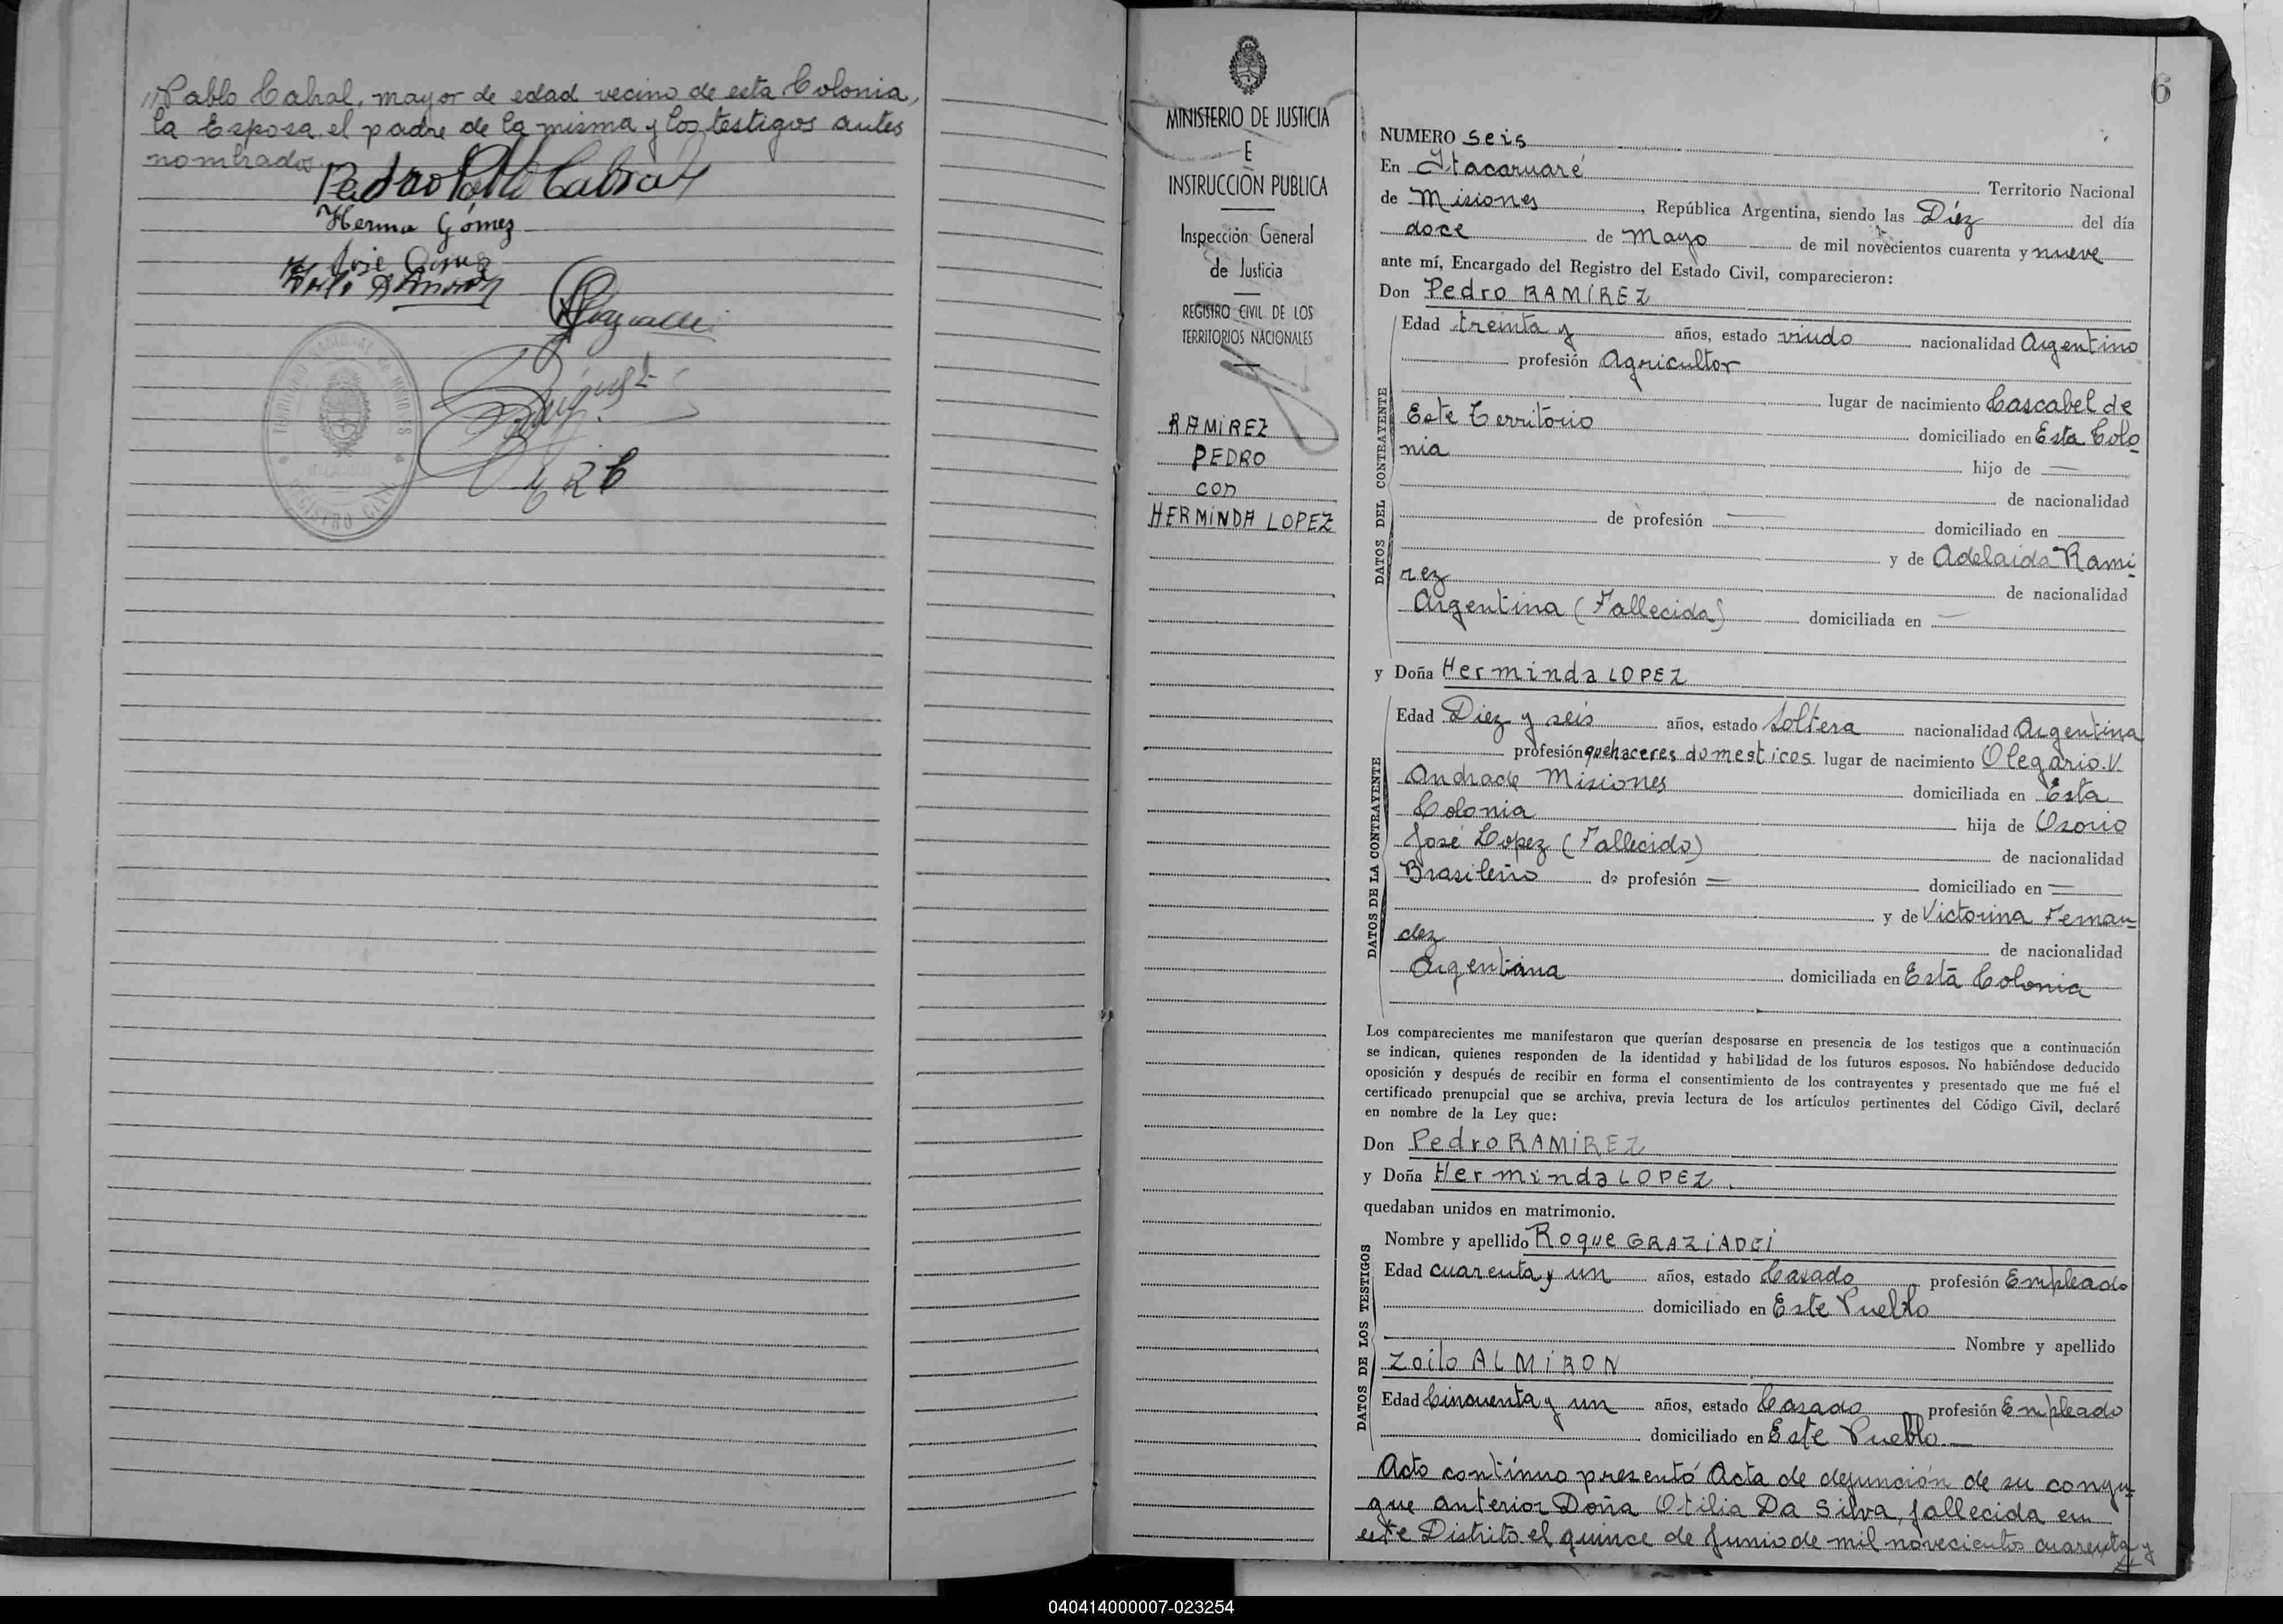 Pablo Cabral, mayor de edad vecino de esta Colonia,
la Esposa, el padre de la misma y los testigos antes
nombrados.
Pedro Pablo Cabral
Herma Gómez
José
TERRITORIO NACIONAL DE MISIONES
REGISTRO CIVIL
MINISTERIO DE JUSTICIA
E
INSTRUCCIÓN PUBLICA
Inspección General
de Justicia
REGISTRO CIVIL DE LOS
TERRITORIOS NACIONALES
RAMIREZ
PEDRO
con
HERMINDA LOPEZ
6
NUMERO seis
En Itacaruaré Territorio Nacional
de Misiones, República Argentina, siendo las Diez del día
doce de Mayo de mil novecientos cuarenta y nueve
ante mí, Encargado del Registro del Estado Civil, comparecieron:
Don Pedro RAMIREZ
DATOS DEL CONTRAYENTE
Edad treinta y años, estado viudo nacionalidad Argentino
profesión Agricultor
lugar de nacimiento Cascabel de
Este Territorio domiciliado en Esta Colo
nia hijo de —
de nacionalidad
de profesión — domiciliado en
y de Adelaida Rami
rez de nacionalidad
Argentina (Fallecida) domiciliada en —
y Doña Herminda LOPEZ
DATOS DE LA CONTRAYENTE
Edad Diez y seis años, estado Soltera nacionalidad Argentina
profesión quehaceres domesticos lugar de nacimiento Olegario V.
Andrade Misiones domiciliada en Esta
Colonia hija de Osorio
José Lopez (Fallecido) de nacionalidad
Brasileño de profesión = domiciliado en =
y de Victorina Fernan
dez de nacionalidad
Argentina domiciliada en Esta Colonia
Los comparecientes me manifestaron que querían desposarse en presencia de los testigos que a continuación
se indican, quienes responden de la identidad y habilidad de los futuros esposos. No habiéndose deducido
oposición y después de recibir en forma el consentimiento de los contrayentes y presentado que me fué el
certificado prenupcial que se archiva, previa lectura de los artículos pertinentes del Código Civil, declaré
en nombre de la Ley que:
Don Pedro RAMIREZ
y Doña Herminda LOPEZ.
quedaban unidos en matrimonio.
DATOS DE LOS TESTIGOS
Nombre y apellido Roque GRAZIADEI
Edad cuarenta y un años, estado Casado profesión Empleado
domiciliado en Este Pueblo
Nombre y apellido
Zoilo ALMIRON
Edad Cincuenta y un años, estado Casado profesión Empleado
domiciliado en Este Pueblo.—
Acto contínuo presentó Acta de defunción de su conyu
gue anterior Doña Otilia Da Silva, fallecida en
este Distrito el quince de Junio de mil novecientos cuarenta y
040414000007-023254